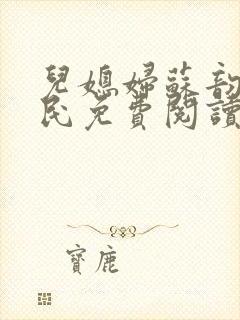 兒媳婦蘇韵
民免費閱讀
寶鹿